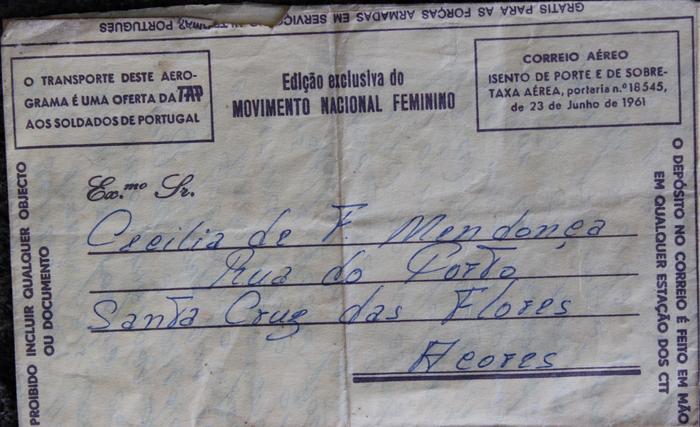 GRATIS PARA AS FORÇAS ARMADAS EM SERVIÇO
PORTUGUÊS
O TRANSPORTE DESTE AERO-
GRAMA É UMA OFERTA DA TAP
AOS SOLDADOS DE PORTUGAL
Edição exclusiva do
MOVIMENTO NACIONAL FEMININO
CORREIO AÉREO
ISENTO DE PORTE E DE SOBRE-
TAXA AÉREA, portaria n.º 18 545,
de 23 de Junho de 1961
Ex.mo Sr.
Cecilia de F. Mendonça
Rua do Porto
Santa Cruz das Flores
Açores
PROIBIDO INCLUIR QUALQUER OBJECTO
OU DOCUMENTO
O DEPÓSITO NO CORREIO É FEITO EM MÃO
EM QUALQUER ESTAÇÃO DOS CTT